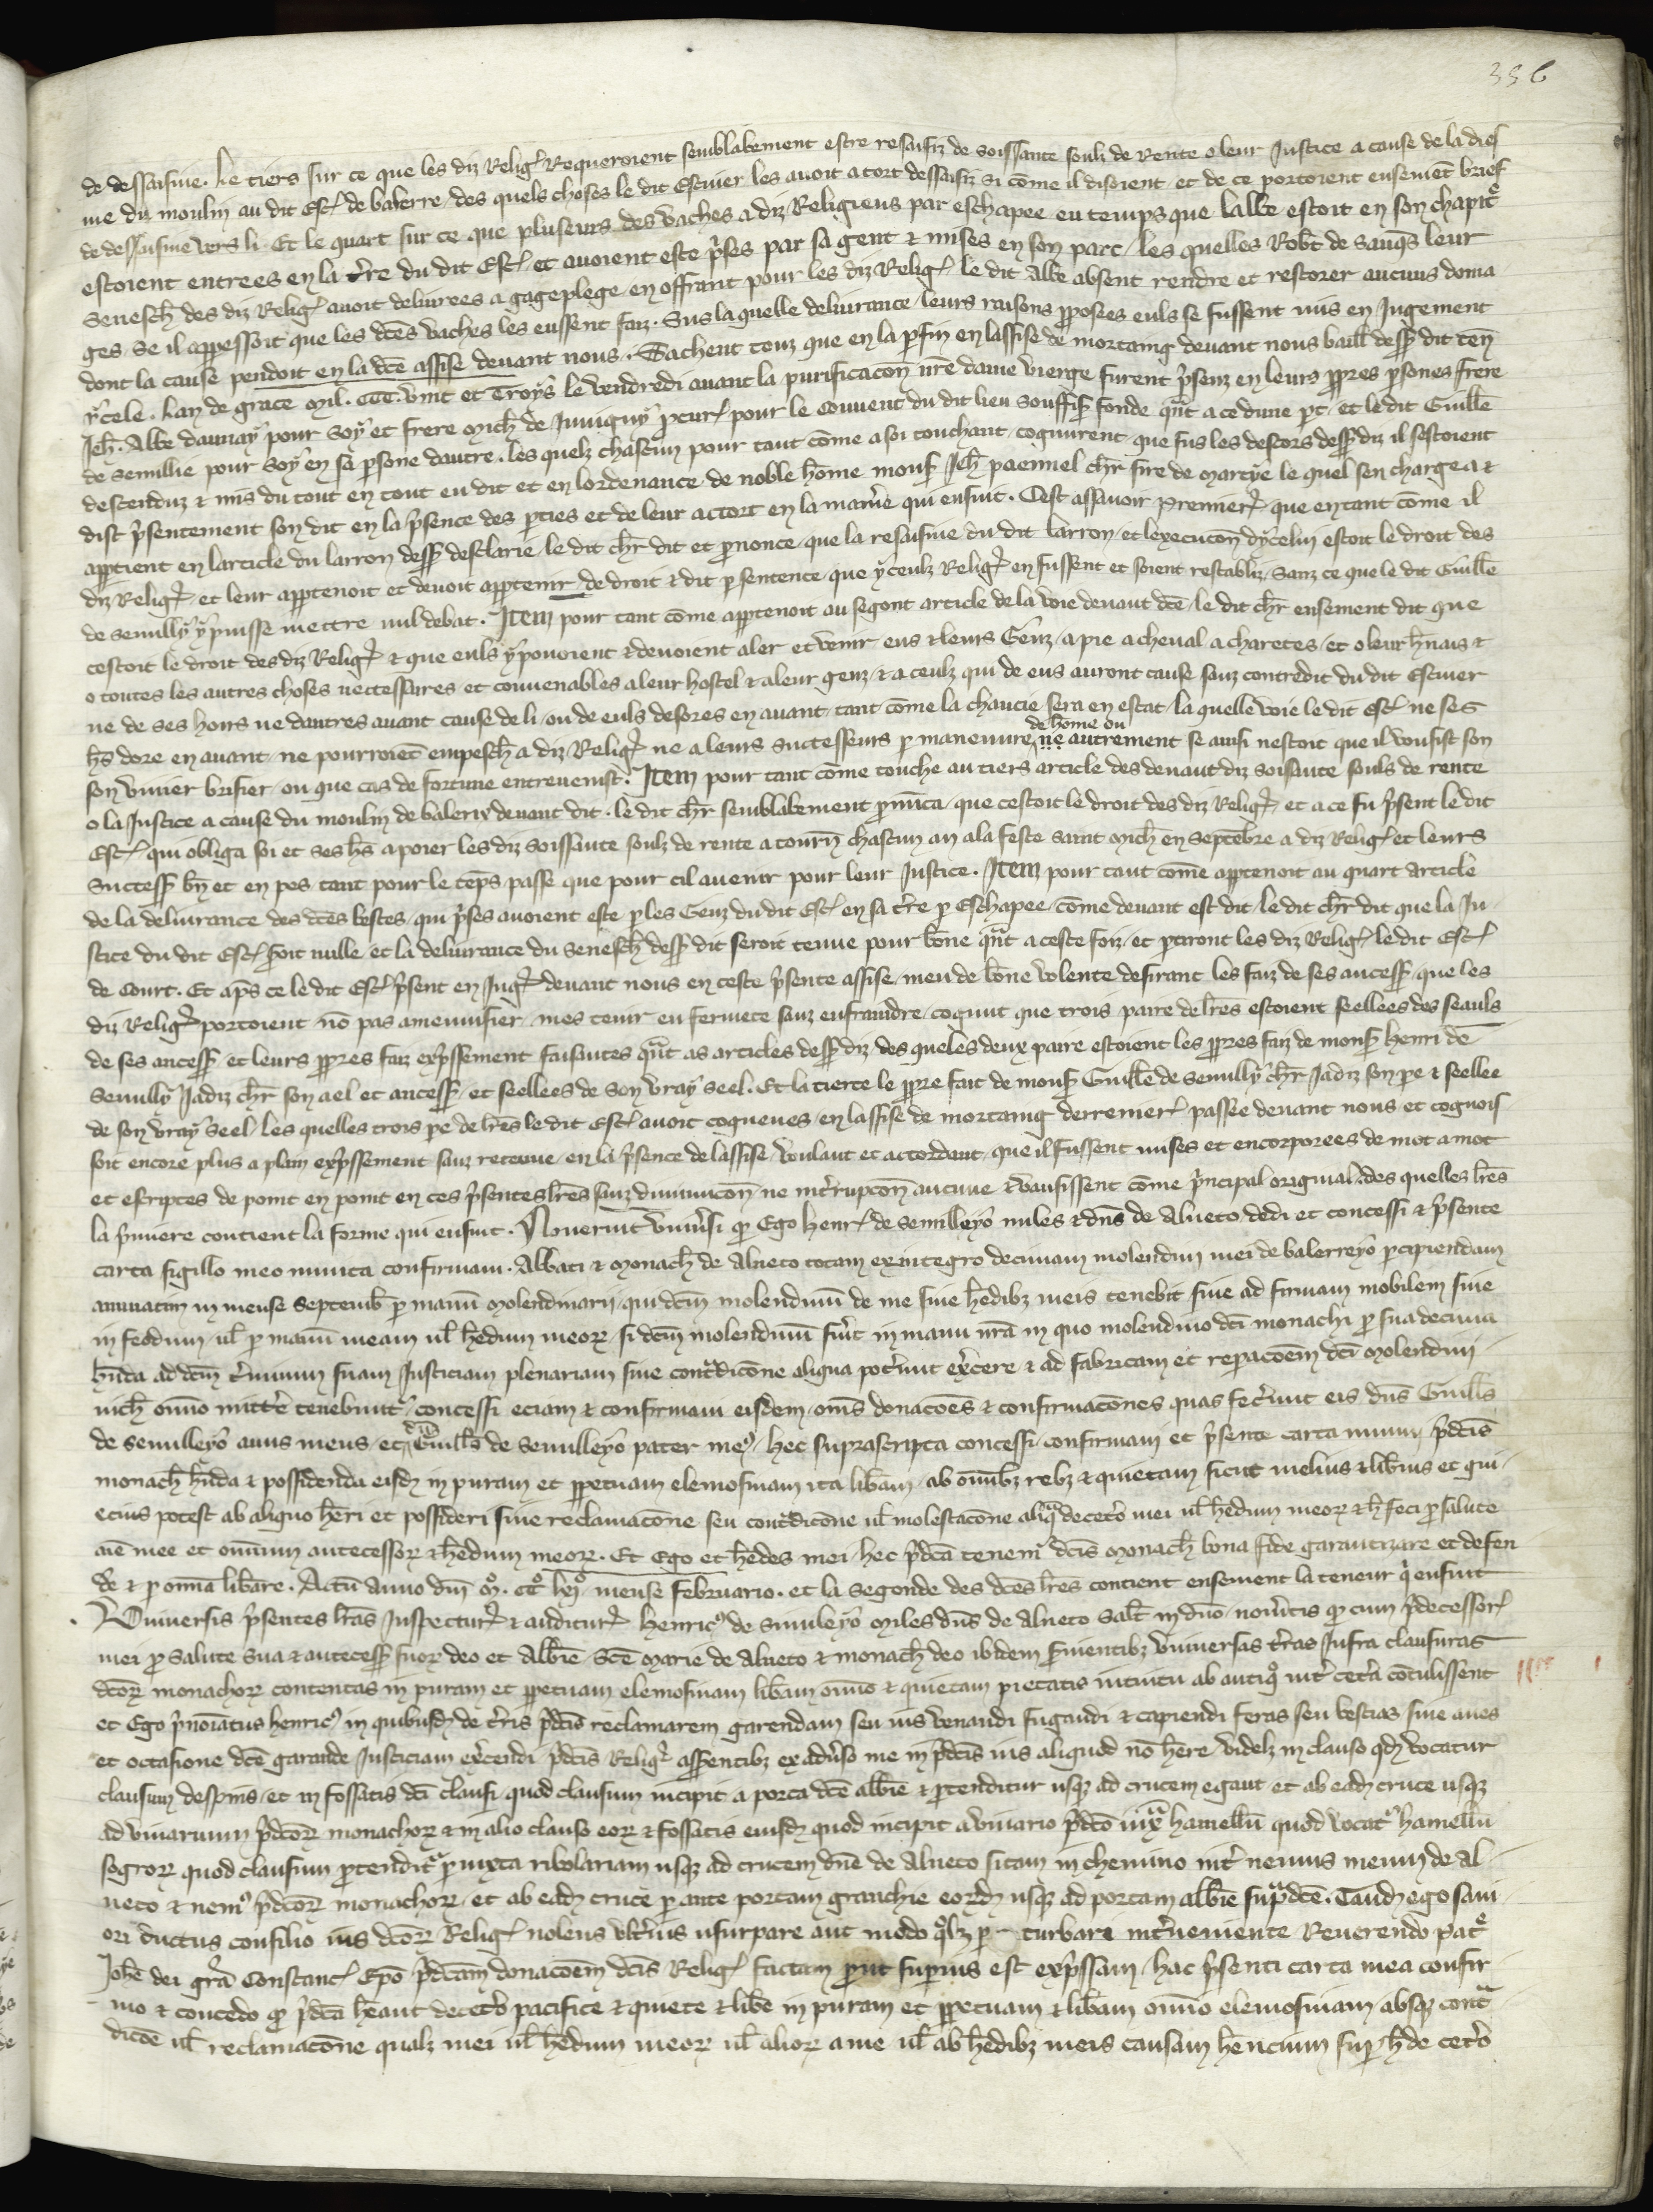 336
de dessaisine. Le tiers sur ce que les diz Relig. Requeroient semblablement estre resaisiz de soissante soulz de Rente o leur Justice a cause de la dies
me du moulin au dit Esc. de balerre / des quels choses le dit Escuier les auoit a tort dessaisiz si cōme il disoient et de ce portoient ensemēt brief
de dessaisine vers li. Et le quart sur ce que pluseurs des vaches a diz Religieus par eschapee eu temps que labbe estoit en son chapitr
estoient entrees en la t're du dit Esc. et auoient este p'ses par sa gent & mises en son parc / les quelles Rob't de sauq's leur
Senesch' des diz Relig. auoit deliurees a gageplege en offrant pour les diz Relig. le dit Abbe absent rendre et restorer aucuns doma
ges Se il appessoit que les d'ces vaches les eussent faiz. Sus la quelle deliurance / leurs raisons pposees euls se fussent mis en Jugement
dont la cause pendoit en la d'ce assise deuant nous. Sachent touz que en la p fin en lassise de mortaing deuant nous baill' dess' dit ten'
ycele. Lan de grace Mil. CCC. vint et Troys le vendredi auant la purificacōn n're dame vierge furent p'senz en leurs ppres psones frere
Jeh'. Abbe daunay pour Soy et frere Mich' de Juuigny pcur. pour le couuent du dit lieu souffis' fonde qn't a ce dune pt / et le dit Guill'e
de Semillie pour Soy en sa psone dautre. les quelz chascun pour tant cōme a soi touchant / cognurent que sus les descors dess' diz il sestoient
descenduz & mis du tout en tout eu dit et en lordenance de noble hōme mons' Jeh' paennel ch'r sire de Marcye le quel sen chargea &
dist p'sentement son dit en la p'sence des pties et de leur actort en la man'e qui ensuit. Cest assauoir premier. que en tant cōme il
apptient en larticle du larron dess' desclarie / le dit ch'r dit et pnonce / que la resaisine du dit larron / et lexecucōn dycelui estoit le droit des
diz Relig. et leur apptenoit et deuoit apptenir de droit & dit p sentence / que yceulz Relig. en fussent et soient restabliz / Sanz ce que le dit Guill'e
de semilly y puisse mettre nul debat. Item pour tant cōme apptenoit au segont article de la voie deuant d'ce / le dit ch'r ensement dit que
cestoit le droit des diz Relig. & que euls y pouoient & deuoient aler et venir eus & leurs Genz / a pie a cheual a charetes / et o leur h'nais &
o toutes les autres choses neccessaires et conuenables a leur hostel & a leur genz / & a ceulz qui de eus auront cause sanz contredit du dit Escuier
ne de ses hoirs ne dautres auant cause de li / ou de euls desores en auant / tant cōme la chaucie sera en estat / la quelle voie le dit Esc. ne ses
h's dore en auant / ne pourroiēt empesch' a diz Relig. ne a leurs Successeurs p maneuure de hōme ou ne autrement se ainsi nestoit que il vousist son
son viuier brisier / ou que cas de fortune entreuenist. Item pour tant cōme touche au tiers article des deuant diz soissante souls de rente
o la Justice a cause du moulin de balerry deuant dit. le dit ch'r semblablement pnūca / que cestoit le droit des diz Relig. et a ce fu p'sent le dit
Esc. qui obliga soi et ses h's a poier les diz soissante soulz de rente a tourn' chascun an a la feste saint Mich' en Septēbre a diz Relig. et leurs
Success' bn' et en pes tant pour le tēps passe que pour cil auenir pour leur Justice. Item pour tant cōme apptenoit au quart article
de la deliurance des d'ces bestes / qui p'ses auoient este p les Genz du dit Esc. en sa t're p Eschapee / cōme deuant est dit / le dit ch'r dit que la Ju
stice du dit Esc. s'oit nulle / et la deliurance du Senesch' dess' dit seroit tenue pour bōne qn't a ceste foiz / et ptiront les diz Relig. le dit Esc.
de Court. Et ap's ce le dit Esc. p'sent en Jug. deuant nous en ceste p'sente assise / meu de bōne volente desirant les faiz de ses ancess' que les
diz Relig. portoient nō pas amenuisier / mes tenir en fermete sanz enfraindre / cognut que trois paire de l'res estoient seellees des seauls
de ses ancess' et leurs ppres faiz exp'ssement faisantes qn't as articles dess' diz des queles deux paire estoient les ppres faiz de mons' Henri de
Semilly Jadiz ch'r son ael et ancess' et seellees de son vray seel. Et la tierce le ppre fait de mons' Guill'e de Semilly ch'r Jadiz son pe & seellee
de son vray seel / les quelles trois pe de l'res le dit Esc. auoit cogneues / en lassise de mortaing derrenier. passee deuant nous et cognois
soit encore plus a plain exp'ssement sanz retenue / en la p'sence de lassise / voulant et accordant / que il fussent mises et encorporees de mot a mot
et escriptes de point en point en ces p'sentes l'res sanz diminucōn / ne int'rupcōn aucune & vausissent cōme p'ncipal original / des quelles l'res
la p'miere contient la forme qui ensuit. Nouerint vniu'si q' Ego Henr. de Semilleyo miles & dn's de Alneto / dedi et concessi & p'sente
carta sigillo meo munita confirmaui. Abbati & Monach' de Alneto totam ex integro decimam molendini mei de balerreyo pcipiendam
annuatim in mense Septemb' p manū Molendinarij / qui dc'm molendinū de me siue h'edibz meis tenebit siue ad firmam mobilem siue
in feodum ul' p manū meam ul' h'edum meor. si dc'm molendinū fu'it in manu n'ra in quo molendino dc'i monachi p sua decima
h'nda ad dc'm t'minum suam Justiciam plenariam sine cont'dicōne aliqua pot'unt ex'cere & ad fabricam et repacōem dc'i Molendini
nich' om'io mitt'e tenebunt'. concessi eciam & confirmaui eisdem / om's donacōes & confirmacōnes quas fec'unt eis dn's Guill's
de Semilleyo auus meus / et dn's Guill's de Semilleyo pater me9 / hec suprascripta concessi / confirmaui et p'sente carta muniui p'dc'is
monach' h'nda & possidenda eisd' in puram et ppetuam elemosinam ita lib'am / ab om'ibz rebz & quietam sicut melius & lib'ius et qui
ecius potest ab aliquo h'eri et possideri siue reclamacōne seu cont'dicōne ul' molestacōne aliq' decet'o mei ul' h'edum meor. & h' feci p salute
aīe mee et omnium antecessor. & h'edum meor. Et Ego et h'edes mei / hec p'dc'a tenem' dc'is Monach' bona fide garantizare et defen
de' & p om'ia lib'are. Actū anno dn'i M. CC. lvj. mense Februario. et la segonde des d'ces l'res contient ensement la teneur q' ensuit
Vniuersis p'sentes l'ras Inspectur. & auditur. Henric9 de Simileyo Miles dn's de Alneto Sal't in dn'o / nou'itis q' cum p'decessor.
mei p salute Sua & antecess' suor. deo et Abb'ie S'ce Marie de Alneto & monach' deo ibidem s'uientibz vniuersas t'ras Infra clausuras
dc'or. monachor. contentas in puram et ppetuam elemosinam lib'am om'io & quietam pietatis intuitu ab antiq' int' cet'a cōtulissent
et Ego p'noīatus Henric9 in quibusd' de t'ris p'dc'is reclamarem garendam seu ius venandi fugandi & capiendi feras seu bestias siue aues
et occasione dc'e garande Justiciam ex'cendi p'dc'is Relig. asserentibz ex adu'so me in p'dc'is ius aliquod nō h'ere / videlz in clauso qd' vocatur
clausum despins / et in fossatis dc'i clausi / quod clausum incipit a porta dc'e abb'ie & ptenditur usq. ad crucem egaut / et ab ead' cruce usq.
ad viuarium p'dc'or. monachor. & in alio clauso eor. & fossatis eiusd' quod incipit a viuario p'dc'o iuxa hamellū quod vocat' hamellū
segror. quod clausum ptendit' p iuxta ribolariam usq. ad crucem dn'e de Alneto sitam in chemino int' nemus meum de Al
neto & nem9 p'dc'or. monachor. et ab ead' cruce p ante portam granchie eord' usq. ad portam abb'ie sup'dc'e. Tand' ego sani
ori ductus consilio ius dc'or. Relig. nolens vlt'ius usurpare aut modo q'lz p turbare int'ueniente Reuerendo pat'
Joh'e dei gr'a Constanc. Epō p'dc'am donacōem dc'is Relig. factam put superius est exp'ssam / hac p'senti carta mea confir
mo & concedo q' p'dc'a h'eant decet'o pacifice & quiete & lib'e in puram et ppetuam & lib'am om'io elemosinam / absq. cont'
dicōe ul' reclamacōne qualz mei ul' h'edum meor. ul' alior. a me ul' ab h'edibz meis causam h'encium sup' h' de cet'o